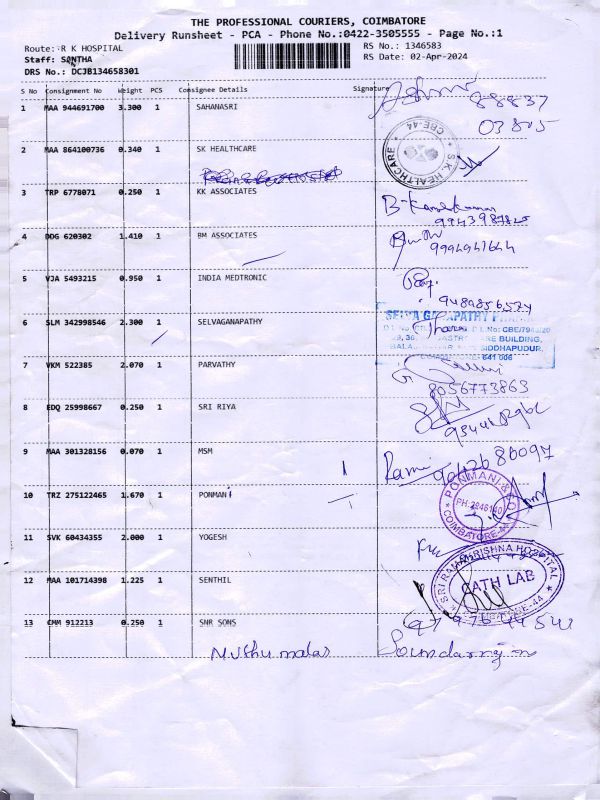 THE PROFESSIONAL COURIERS, COIMBATORE
Delivery Runsheet - PCA - Phone No.:0422-3505555 - Page No.:1
Route: R K HOSPITAL
RS No.: 1346583
Staff: SONTHA
RS Date: 02-Apr-2024
DRS No.: DCJB134658301
S No Consignment No Weight PCS Consignee Details Signature
1 MAA 944691700 3.300 1 SAHANASRI
88837
03805
2 MAA 864100736 0.340 1 SK HEALTHCARE
S.K. HEALTHCARE CBE-44
3 TRP 6778071 0.250 1 KK ASSOCIATES
4 DDG 620302 1.410 1 BM ASSOCIATES
5 VJA 5493215 0.950 1 INDIA MEDTRONIC
6 SLM 342998546 2.300 1 SELVAGANAPATHY
641 006
7 VKM 522385 2.070 1 PARVATHY
8056773863
8 EDQ 25998667 0.250 1 SRI RIYA
9 MAA 301328156 0.070 1 MSM
Rami
10 TRZ 275122465 1.670 1 PONMANI
PONMANI & CO
COIMBATORE-44
11 SVK 60434355 2.000 1 YOGESH
12 MAA 101714398 1.225 1 SENTHIL
SRI RAMAKRISHNA HOSPITAL
CATH LAB
13 CMM 912213 0.250 1 SNR SONS
Muthu malar Soundarrajan